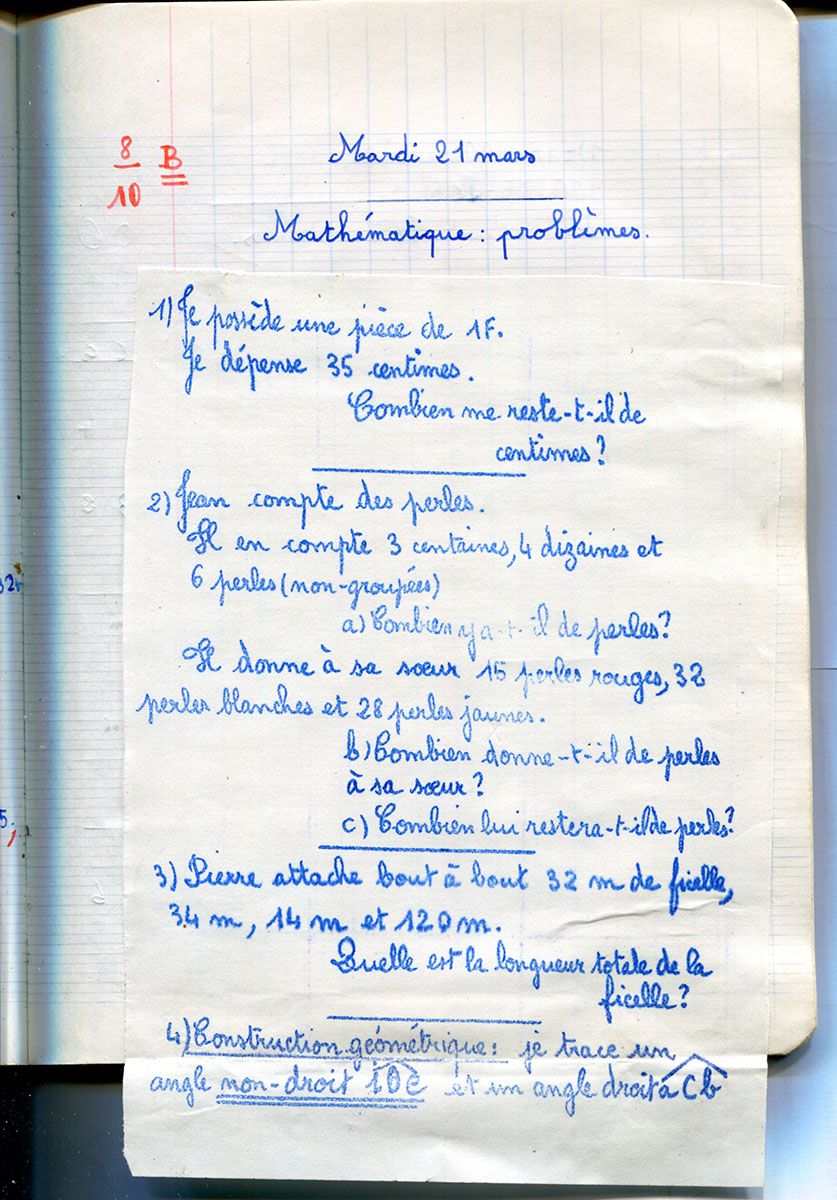 8
10
B
Mardi 21 mars
Mathématique : problèmes.
1) Je possède une pièce de 1F.
Je dépense 35 centimes.
Combien me reste-t-il de
centimes ?
2) Jean compte des perles.
Il en compte 3 centaines, 4 dizaines et
6 perles (non-groupées)
a) Combien y a-t-il de perles ?
Il donne à sa sœur 15 perles rouges, 32
perles blanches et 28 perles jaunes.
b) Combien donne-t-il de perles
à sa sœur ?
c) Combien lui restera-t-il de perles ?
3) Pierre attache bout à bout 32 m de ficelle,
34 m, 14 m et 120 m.
Quelle est la longueur totale de la
ficelle ?
4) Construction géométrique : je trace un
angle non-droit et un angle droit a C b